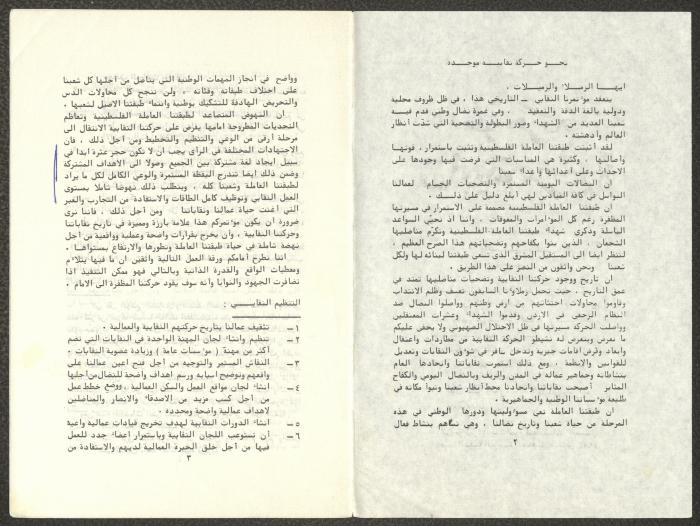 نحو حركة نقابية موحدة
ايها الزملاء والزميلات ،
ينعقد مؤتمرنا النقابي ــ التاريخي هذا ، في ظل ظروف محلية
ودولية بالغة الدقة والتعقيد ، وفي غمرة نضال وطني قدم فيه
شعبنا العديد من الشهداء وصور البطولة والتضحية التي شدّت أنظار
العالم وأدهشته .
لقد أثبتت طبقتنا العاملة الفلسطينية وتثبت باستمرار ، قوتها
وأصالتها ، وكثيرة هي المناسبات التي فرضت فيها وجودها على
الاحداث وعلى أعدائها وأعداء شعبنا
ان النضالات اليومية المستمرة والتضحيات الجسام لعمالنا
البواسل في كافة الميادين لهي أبلغ دليل على ذلك .
ان طبقتنا العاملة الفلسطينية مصممة على الاستمرار في مسيرتها
المظفرة رغم كل المؤامرات والمعوقات . واننا اذ نحيّي السواعد
الباسلة وذكرى شهداء طبقتنا العاملة الفلسطينية ونكرّم مناضليها
الشجعان ، الذين بنوا بكفاحهم وتضحياتهم هذا الصرح العظيم ،
لننظر ايضا الى المستقبل المشرق الذي تسعى طبقتنا لبنائه لها ولكل
شعبنا ونحن واثقون من النصر على هذا الطريق .
ان تاريخ ووجود حركتنا النقابية وتضحيات مناضليها تمتد في
عمق التاريخ ، حيث تحمل زملاؤنا السابقون تعسف وظلم الانتداب
وقاوموا محاولات اجتثاثهم من ارض وطنهم وواصلوا النضال ضد
النظام الرجعي في الاردن وقدموا الشهداء وعشرات المعتقلين
وواصلت الحركة مسيرتها في ظل الاحتلال الصهيوني ولا يخفى عليكم
ما تعرض ويتعرض له نشيطو الحركة النقابية من مطاردات واعتقال
وابعاد وفرض اقامات جبرية وتدخل سافر في شؤون النقابات وتعديل
للقوانين والانظمة . ومع ذلك استمرت نقاباتنا واتحادها العام
بنشاطاته وجماهير عماله في المدن والريف وبالنضال اليومي والكفاح
المثابر أصبحت نقاباتنا واتحادنا محط أنظار شعبنا وتبوأ مكانه في
طليعة مؤسساتنا الوطنية والجماهيرية .
ان طبقتنا العاملة تعي مسؤوليتها ودورها الوطني في هذه
المرحلة من حياة شعبنا وتاريخ نضالنا ، وهي تساهم بنشاط فعال
٢
وواضح في انجاز المهمات الوطنية التي يناضل من اجلها كل شعبنا
على اختلاف طبقاته وفئاته . ولن تنجح كل محاولات الدس
والتحريض الهادفة للتشكيك بوطنية وانتماء طبقتنا الاصيل لشعبها .
ان النهوض المتصاعد لطبقتنا العاملة الفلسطينية وتعاظم
التحديات المطروحة امامها يفرض على حركتنا النقابية الانتقال الى
مرحلة أرقى من الوعي والتنظيم والتخطيط ومن أجل ذلك ، فان
الاجتهادات المختلفة في الرأي يجب ان لا تكون حجر عثرة ابدا في
سبيل ايجاد لغة مشتركة بين الجميع وصولا الى الاهداف المشتركة
وضمن ذلك ايضا تندرج اليقظة المستمرة والوعي الكامل لكل ما يراد
لطبقتنا العاملة وشعبنا كله . ويتطلب ذلك نهوضا شاملا بمستوى
العمل النقابي وتوظيف كامل الطاقات والاستفادة من التجارب والعبر
التي أغنت حياة عمالنا ونقاباتنا . ومن أجل ذلك ، فاننا نرى
ضرورة ان يكون مؤتمركم هذا علامة بارزة ومميزة في تاريخ نقاباتنا
وحركتنا النقابية ، وان يخرج بقرارات واضحة وعملية وواقعية من أجل
نهضة شاملة في حياة طبقتنا العاملة وتطورها والارتفاع بمستواها .
اننا نطرح أمامكم ورقة العمل التالية واثقين ان ما فيها يتلاءم
ومعطيات الواقع والقدرة الذاتية وبالتالي فهو ممكن التنفيذ اذا
تضافرت الجهود والنوايا وأنه سوف يقود حركتنا المظفرة الى الامام .
التنظيم النقابي :
١ــ تثقيف عمالنا بتاريخ حركتهم النقابية والعمالية .
٢ــ تنظيم وانشاء لجان المهنة الواحدة في النقابات التي تضم
أكثر من مهنة ( مؤسسات عامة ) وزيادة عضوية النقابات .
٣ــ النقاش المستمر والتوجيه من أجل فتح أعين عمالنا على
واقعهم وتوضيح أسبابه ورسم اهداف واضحة للنضال من أجلها
٤ــ انشاء لجان مواقع العمل والسكن العمالية . ووضع خطط عمل
من أجل كسب مزيد من الاصدقاء والانصار والمناضلين
لاهداف عمالية واضحة ومحددة .
٥ــ انشاء الدورات النقابية لهدف تخريج قيادات عمالية واعية
٦ــ أن تستوعب اللجان النقابية وباستمرار اعضاء جدد للعمل
فيها من أجل خلق الخبرة العمالية لديهم والاستفادة من
٣